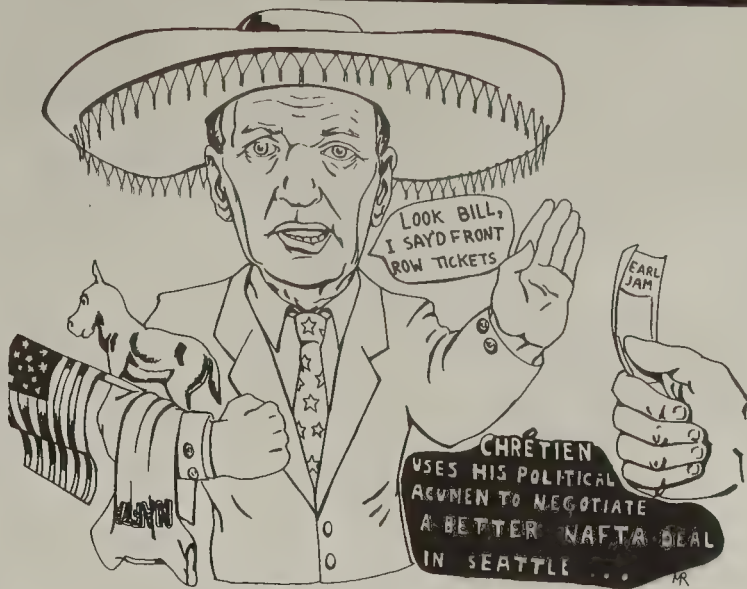 LOOK BILL,
I SAY'D FRONT
ROW TICKETS
EARL
JAM
NAFT
CHRÉTIEN
USES HIS POLITICAL
ACUMEN TO NEGOTIATE
A BETTER NAFTA DEAL
IN SEATTLE ...
MR